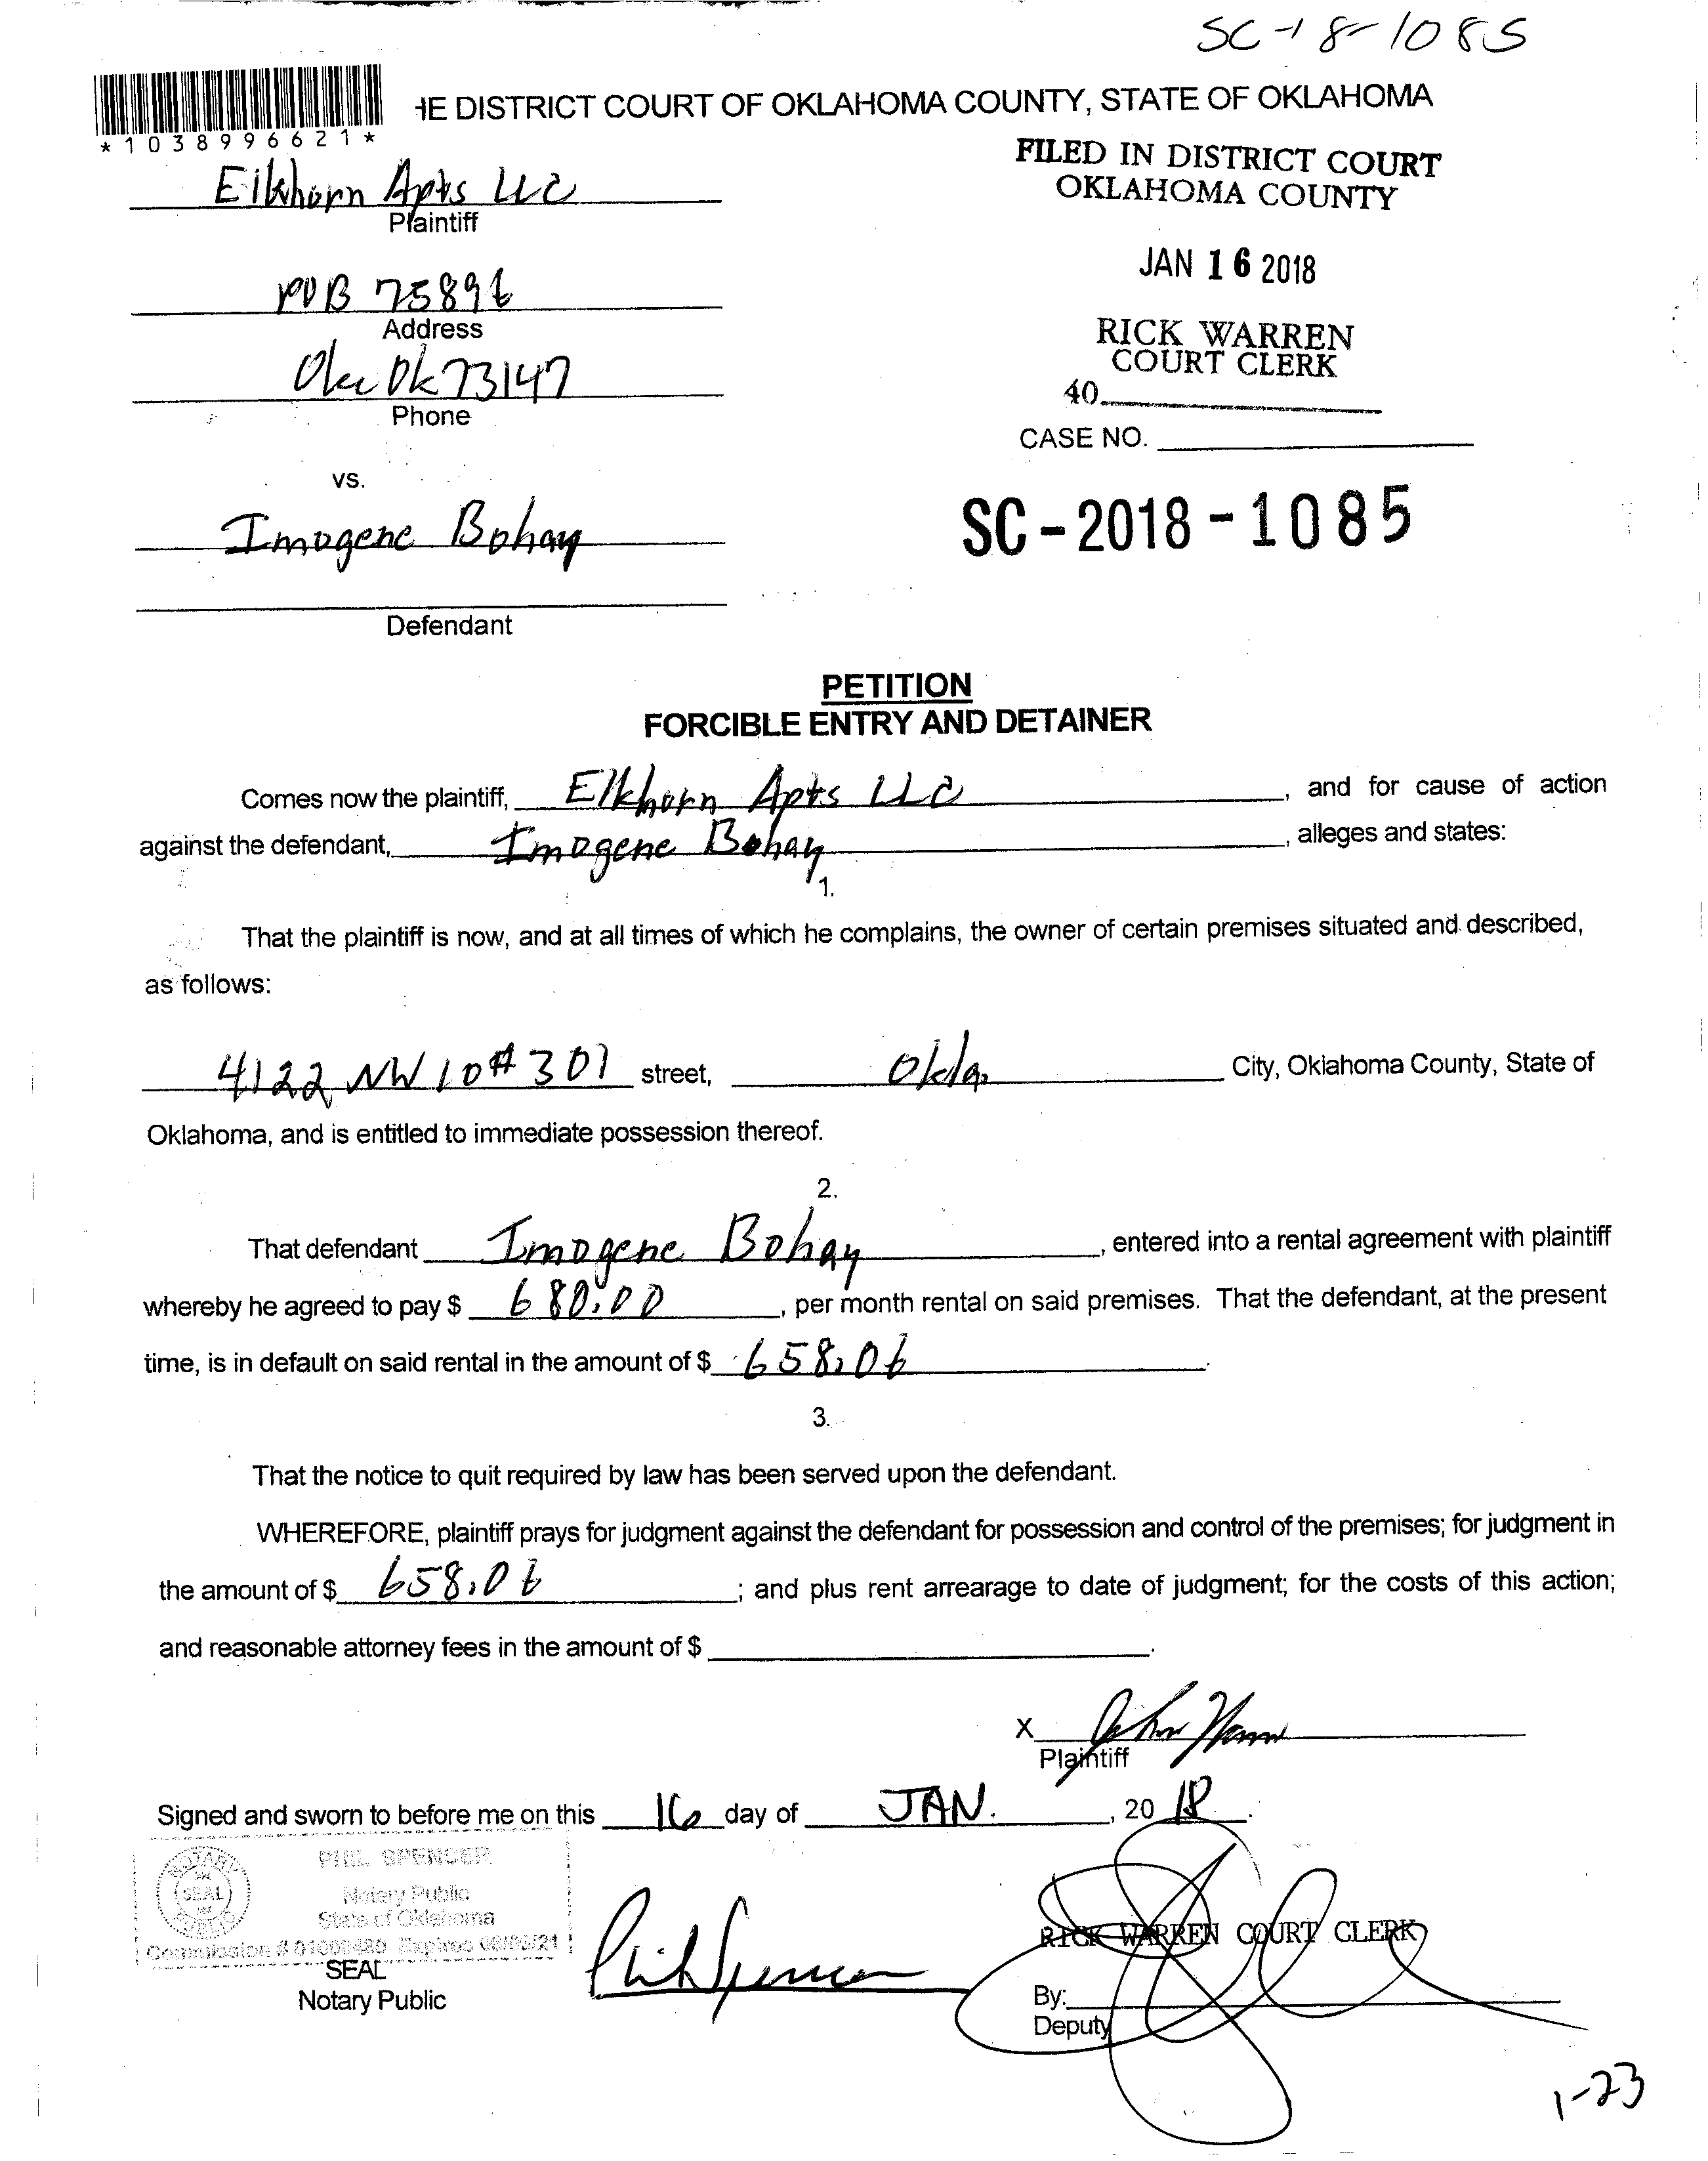 SC-18-1085
HE DISTRICT COURT OF OKLAHOMA COUNTY, STATE OF OKLAHOMA
*1038996621*
FILED IN DISTRICT COURT
OKLAHOMA COUNTY
Elkhorn Apts LLC
Plaintiff
JAN 16 2018
POB 75896
Address
RICK WARREN
COURT CLERK
Okc Ok 73147
Phone
40
CASE NO.
vs.
Imogene Bohay
SC-2018-1085
Defendant
PETITION
FORCIBLE ENTRY AND DETAINER
Comes now the plaintiff, Elkhorn Apts LLC, and for cause of action
against the defendant, Imogene Bohay, alleges and states:
1.
That the plaintiff is now, and at all times of which he complains, the owner of certain premises situated and described,
as follows:
4122 NW 10 # 301 street, Okla. City, Oklahoma County, State of
Oklahoma, and is entitled to immediate possession thereof.
2.
That defendant Imogene Bohay, entered into a rental agreement with plaintiff
whereby he agreed to pay $ 680.00, per month rental on said premises. That the defendant, at the present
time, is in default on said rental in the amount of $ 658.06.
3.
That the notice to quit required by law has been served upon the defendant.
WHEREFORE, plaintiff prays for judgment against the defendant for possession and control of the premises; for judgment in
the amount of $ 658.06; and plus rent arrearage to date of judgment; for the costs of this action;
and reasonable attorney fees in the amount of $.
X
Plaintiff
Signed and sworn to before me on this 16 day of JAN., 2018.
NOTARY PUBLIC SEAL
PHIL SPENCER
Notary Public
State of Oklahoma
Commission # 01000480 Expires
SEAL
Notary Public
Phil Spencer
RICK WARREN COURT CLERK
By:
Deputy
1-23